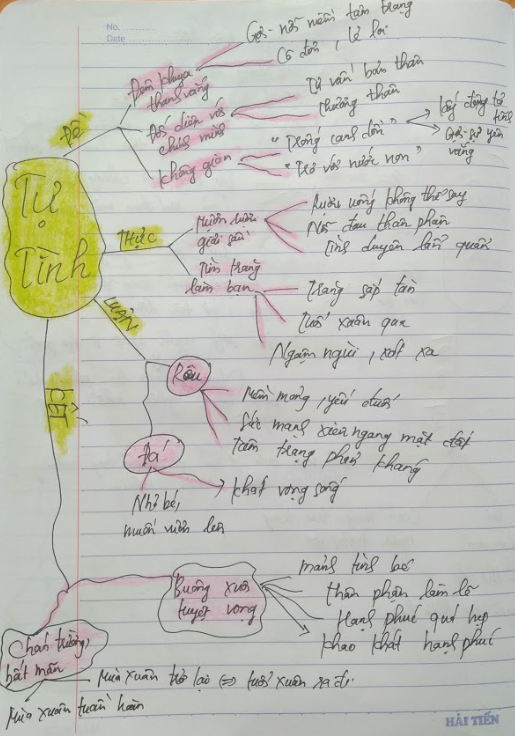 No.
Date
Tự
Tình
ĐỀ
Đêm khuya
thanh vắng
Gợi nỗi niềm tâm trạng
Cô đơn, lẻ loi
Đối diện với
chính mình
Tự vấn bản thân
Thương thân
Không gian
"Trống canh dồn"
lấy động tả tĩnh
Gợi sự yên
vắng
"Trơ với nước non"
THỰC
Mượn rượu
giải sầu
Mượn uống không thể say
Nỗi đau thân phận
Tình duyên lẩn quẩn
Tìm trăng
làm bạn
Trăng sắp tàn
Tuổi xuân qua
Ngậm ngùi, xót xa
LUẬN
Rêu
Mềm mỏng, yếu đuối
Sức mạnh xiên ngang mặt đất
Tâm trạng phản kháng
Đá
Nhỏ bé,
muốn vươn lên
Khát vọng sống
KẾT
Buông xuôi
tuyệt vọng
mảnh tình bé
thân phận làm lẽ
Hạnh phúc quá hẹp
khao khát hạnh phúc
Chán trường,
bất mãn
Mùa xuân trở lại ⇔ tuổi xuân ra đi
Mùa xuân tuần hoàn
HẢI TIẾN